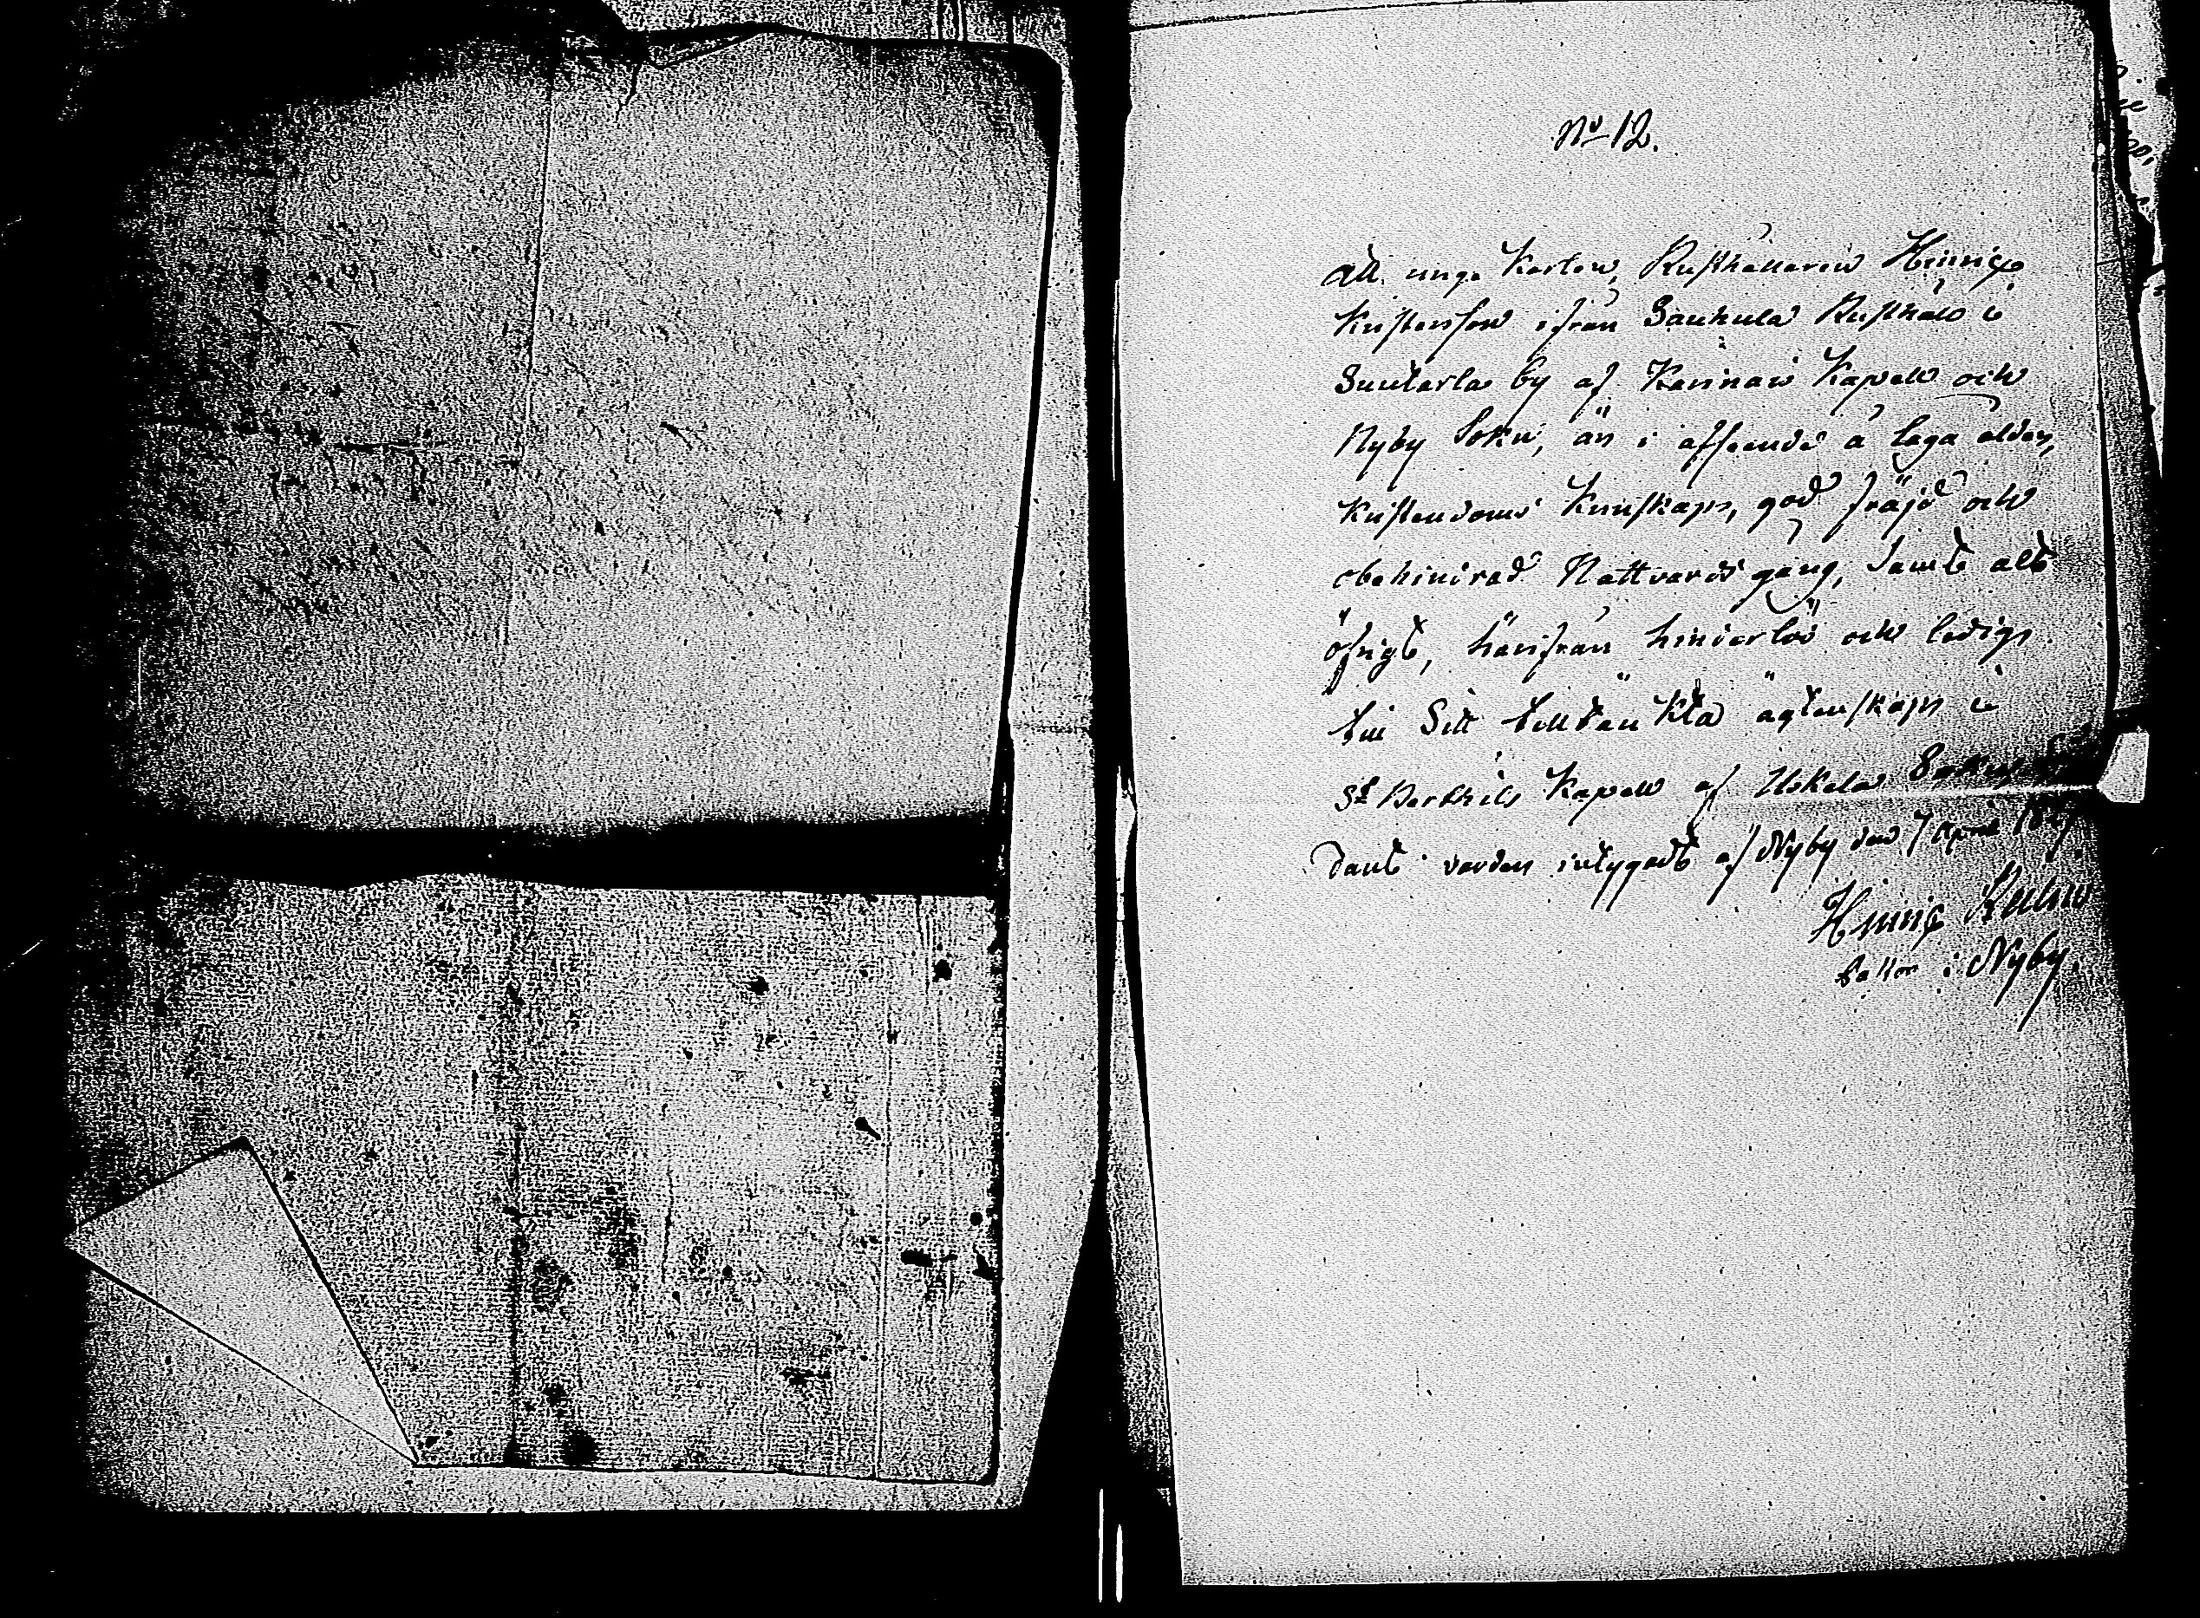 No 12.
Att unge Karlen, Rusthållaren Hinric
Kristersson ifrån Saukula Rusthåll i
Suutarla by af Kaninais Kapell och
Nyby Sokn, är i afseende å laga ålder,
Kristendoms Kunskap, god fräjd och
obehindrad Nattvards gång, samt alt
öfrigt, härifrån hinderlös och ledig
till Sitt tilltänkta ägtenskap i
St Berthils Kapell af Uskela Sokn
varder intygadt af Nyby den 7 April
Hinric
i Nyby.